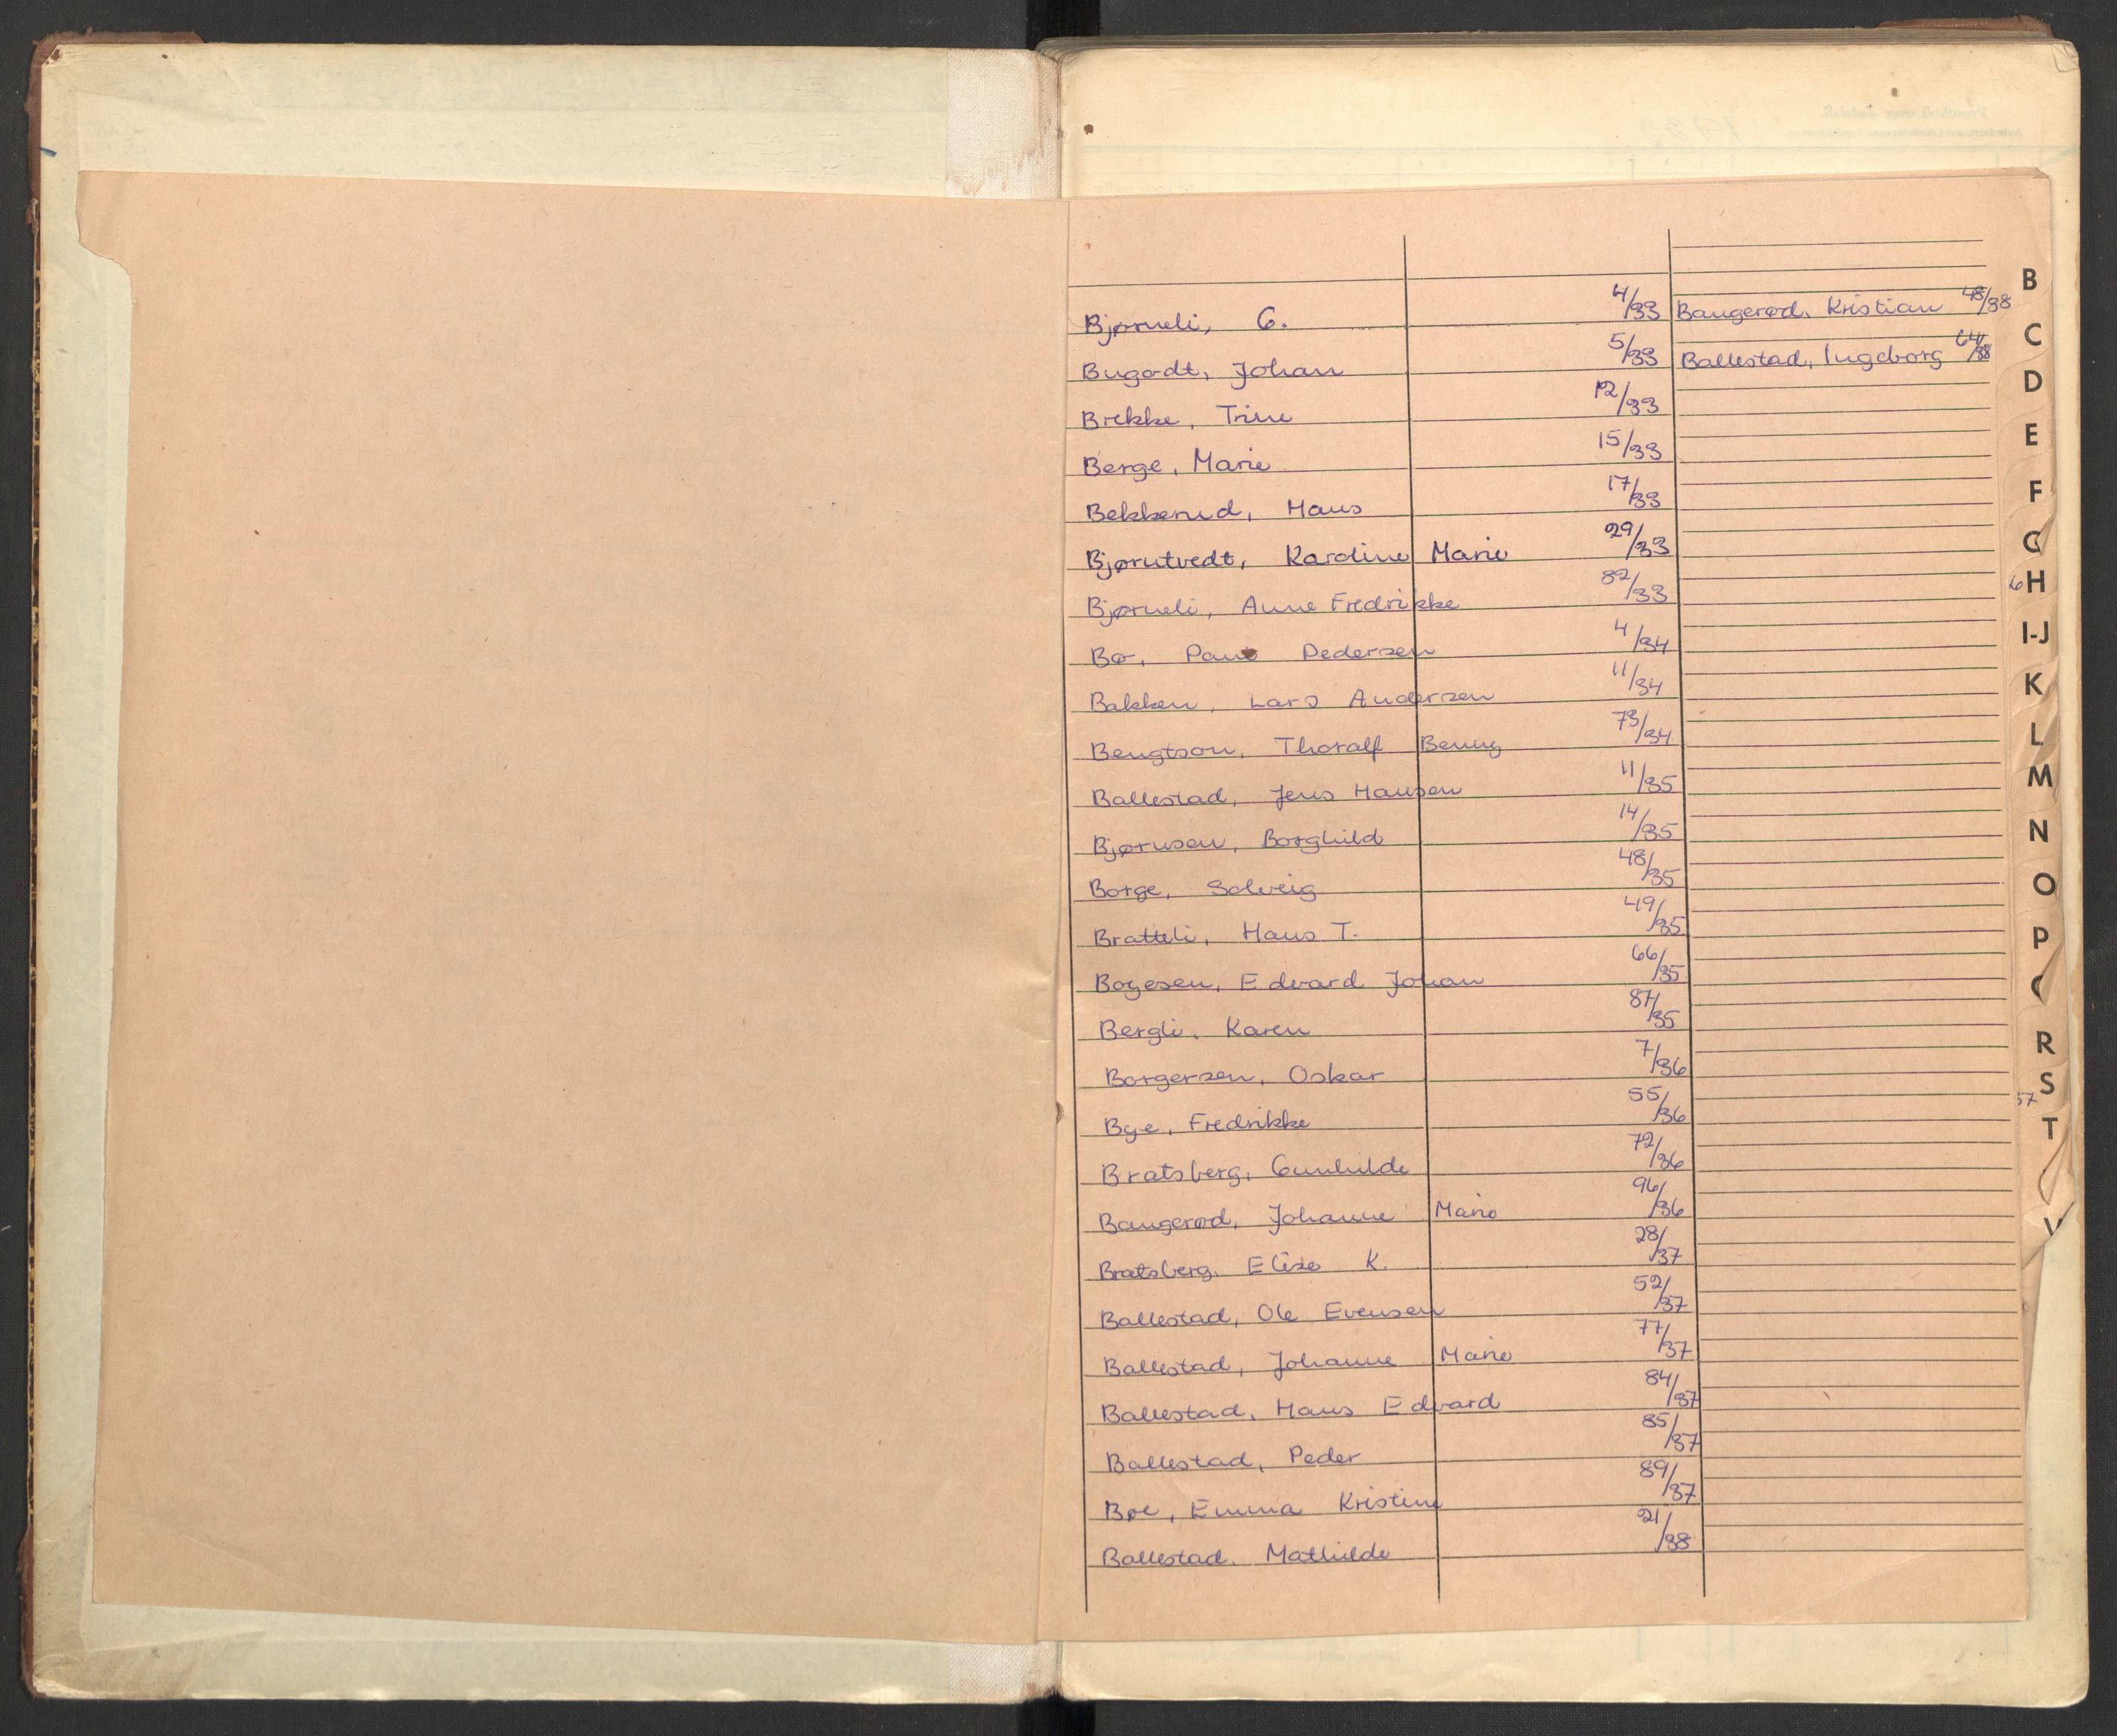 Bjørneli, G. 4/33
Bugodt, Johan 5/33
Brekke, Trine 12/33
Berge, Marie 15/33
Bekkerud, Hans 17/33
Bjørntvedt, Karoline Marie 29/33
Bjørneli, Anne Fredrikke 82/33
Bø, Paul Pedersen 4/34
Bakken, Lars Andersen 11/34
Bengtson, Thoralf Benny 73/34
Ballestad, Jens Hansen 11/35
Bjørnsen, Borghild 14/35
Borge, Solveig 48/35
Bratteli, Hans T. 49/35
Boyesen, Edvard Johan 66/35
Bergli, Karen 87/35
Borgersen, Oskar 7/36
Bye, Fredrikke 55/36
Bratsberg, Gunhilde 72/36
Baugerød, Johanne Marie 96/36
Bratsberg, Elise K. 28/37
Ballestad, Ole Evensen 52/37
Ballestad, Johanne Marie 77/37
Ballestad, Hans Edvard 84/37
Ballestad, Peder 85/37
Bøe, Emma Kristine 89/37
Ballestad, Mathilde 21/38
Baugerød, Kristian 48/38
Ballestad, Ingeborg 64/38
B
C
D
E
F
G
H
I-J
K
L
M
N
O
P
R
S
T
V